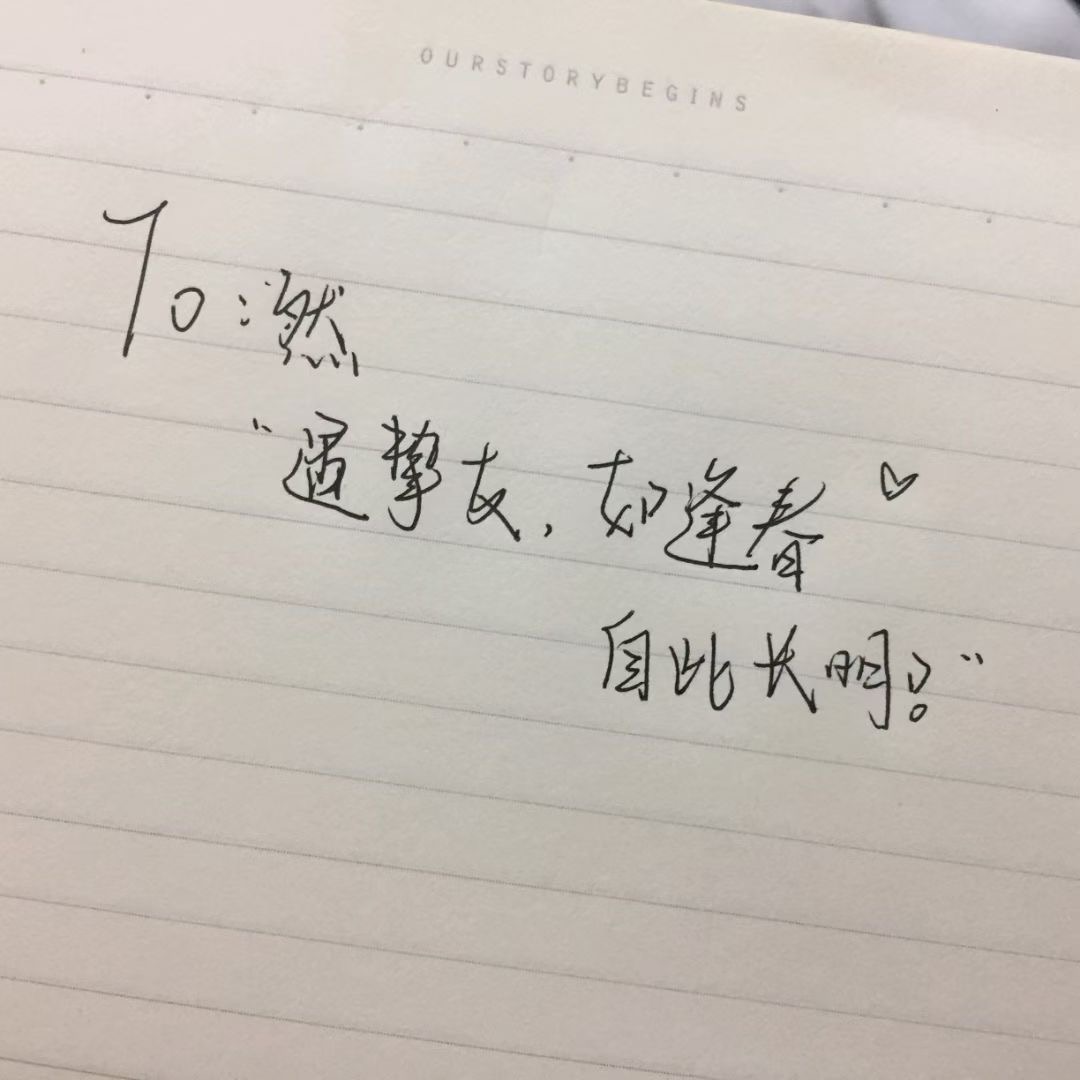 OURSTORYBEGINS
To:然
“遇挚友,如逢春♡
自此长明!”